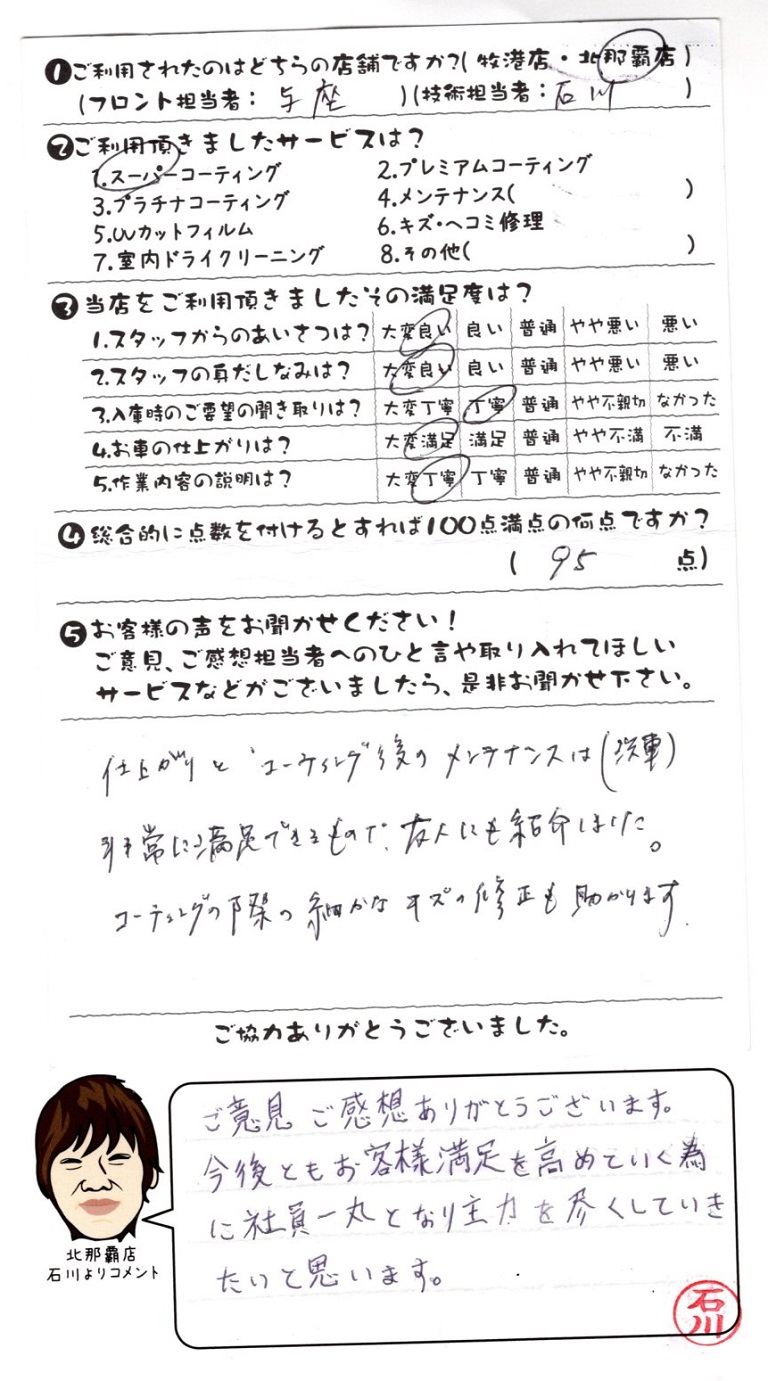 ❶ご利用されたのはどちらの店舗ですか?(牧港店・北那覇店)
(フロント担当者: 与座 )(技術担当者: 石川 )
❷ご利用頂きましたサービスは?
1.スーパーコーティング 2.プレミアムコーティング
3.プラチナコーティング 4.メンテナンス( )
5.UVカットフィルム 6.キズ・ヘコミ修理
7.室内ドライクリーニング 8.その他( )
❸当店をご利用頂きましたその満足度は?
1.スタッフからのあいさつは? 大変良い 良い 普通 やや悪い 悪い
2.スタッフの身だしなみは? 大変良い 良い 普通 やや悪い 悪い
3.入庫時のご要望の聞き取りは? 大変丁寧 丁寧 普通 やや不親切 なかった
4.お車の仕上がりは? 大変満足 満足 普通 やや不満 不満
5.作業内容の説明は? 大変丁寧 丁寧 普通 やや不親切 なかった
❹総合的に点数を付けるとすれば100点満点の何点ですか?
( 95 点)
❺お客様の声をお聞かせください!
ご意見、ご感想担当者へのひと言や取り入れてほしい
サービスなどがございましたら、是非お聞かせ下さい。
仕上がりと コーティング後のメンテナンスは(洗車)
非常に満足できるもので、友人にも紹介しました。
コーティングの際の細かなキズの修正も助かります。
ご協力ありがとうございました。
ご意見 ご感想ありがとうございます。
今後ともお客様満足を高めていく為
に社員一丸となり主力を尽くしていき
たいと思います。
北那覇店
石川よりコメント
石川